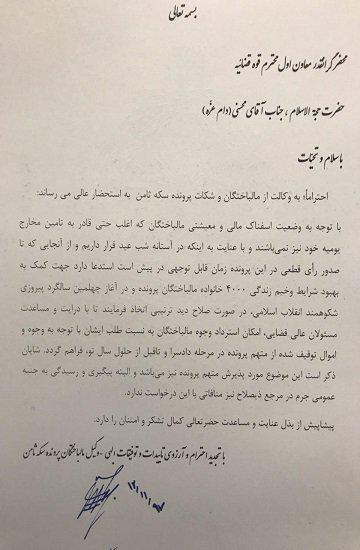 بسمه تعالی
محضر گرانقدر معاون اول محترم قوه قضائیه
حضرت حجة الاسلام ، جناب آقای محسنی (دام عزّه)
با سلام و تحیّات
احتراماً؛ به وکالت از مالباختگان و شکات پرونده سکه ثامن به استحضار عالی می رساند:
با توجه به وضعیت اسفناک مالی و معیشتی مالباختگان که اغلب حتی قادر به تامین مخارج
یومیه خود نیز نمی‌باشند و با عنایت به اینکه در آستانه شب عید قرار داریم و از آنجایی که تا
صدور رأی قطعی در این پرونده زمان قابل توجهی در پیش است استدعا دارد جهت کمک به
بهبود شرایط وخیم زندگی ۴۰۰۰ خانواده مالباختگان پرونده و در آغاز چهلمین سالگرد پیروزی
شکوهمند انقلاب اسلامی، در صورت صلاح دید ترتیبی اتخاذ فرمایند تا با درایت و مساعدت
مسئولان عالی قضایی، امکان استرداد وجوه مالباختگان به نسبت طلب ایشان با توجه به وجوه و
اموال توقیف شده از متهم پرونده در مرحله دادسرا و تاقبل از حلول سال نو، فراهم گردد. شایان
ذکر است این موضوع مورد پذیرش متهم پرونده نیز می‌باشد و البته پیگیری و رسیدگی به جنبه
عمومی جرم در مرجع ذیصلاح نیز منافاتی با این درخواست ندارد.
پیشاپیش از بذل عنایت و مساعدت حضرتعالی کمال تشکر و امتنان را دارد.
با تجدید احترام و آرزوی تاییدات و توفیقات الهی - وکیل مالباختگان پرونده سکه ثامن